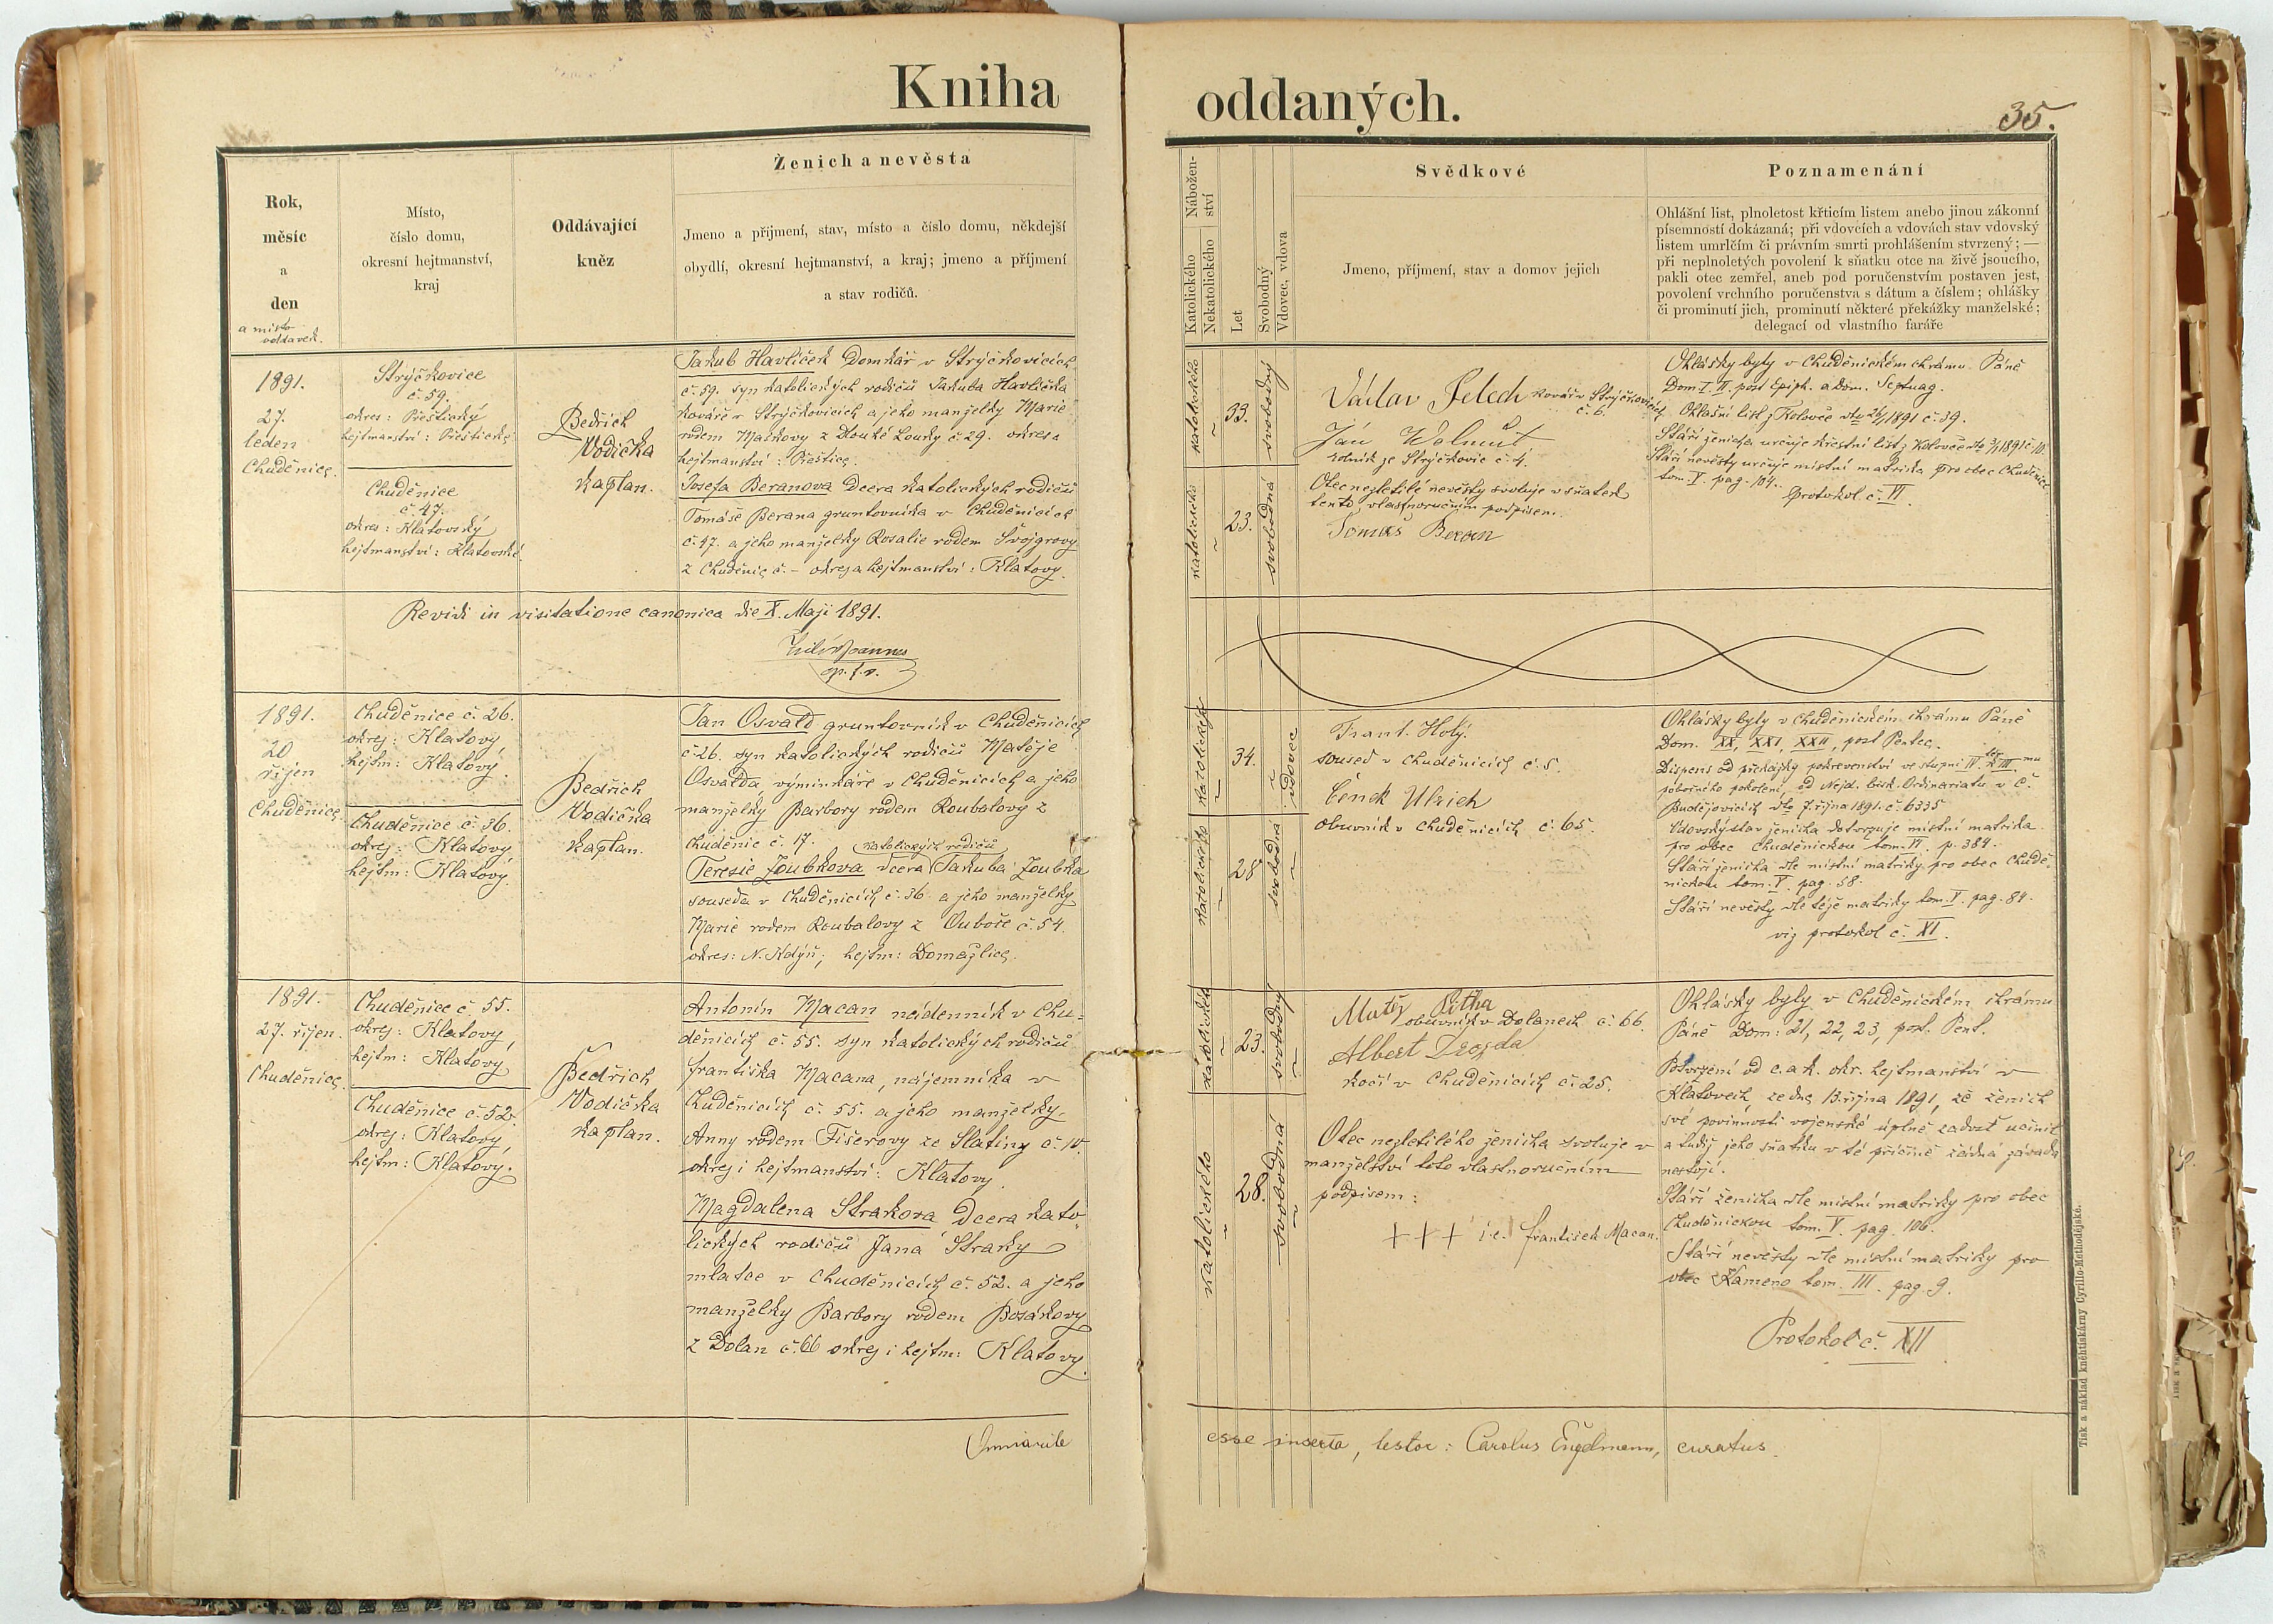 Kniha oddaných.
35.
Rok,
měsíc
a
den
a místo
oddavek.
Místo,
číslo domu,
okresní hejtmanství,
kraj
Oddávající
kněz
Ženich a nevěsta
Jmeno a přijmení, stav, místo a číslo domu, někdejší
obydlí, okresní hejtmanství, a kraj; jmeno a příjmení
a stav rodičů.
Nábožen-
ství
Katolického
Nekatolického
Let
Svobodný
Vdovec, vdova
Svědkové
Jmeno, příjmení, stav a domov jejich
Poznamenání
Ohlášní list, plnoletost křticím listem anebo jinou zákonní
písemností dokázaná; při vdovcích a vdovách stav vdovský
listem umrlčím či právním smrti prohlášením stvrzený; —
při neplnoletých povolení k sňatku otce na živě jsoucího,
pakli otec zemřel, aneb pod poručenstvím postaven jest,
povolení vrchního poručenstva s dátum a číslem; ohlášky
či prominutí jich, prominutí některé překážky manželské;
delegací od vlastního faráře
1891.
27.
leden
Chuděnice.
Strýčkovice
č. 59.
okres: Přeštický
hejtmanství: Přeštické
Chuděnice
č. 47.
okres: Klatovský
hejtmanství: Klatovské.
Bedřich
Vodička
kaplan.
Jakub Havlíček Domkář v Strýčkovicích
č. 59. syn katolických rodičů Jakuba Havlíčka
kováře v Strýčkovicích a jeho manželky Marie
rodem Mackovy z Dlouhé Louky č. 29. okres a
hejtmanství: Přeštice.
Josefa Beranova Dcera katolických rodičů
Tomáše Berana gruntovníka v Chuděnicích
č. 47. a jeho manželky Rosalie rodem Švojgrovy
z Chuděnic č. – okres a hejtmanství: Klatovy.
katolického
33.
svobodný
katolického
23.
svobodná
Václav Jelech kovář v Strýčkovicích
č. 6.
Ján Welmut
rolník ze Strýčkovic č. 4.
Otec nezletilé nevěsty svoluje v sňatek
tento, vlastnoručním podpisem.
Tomáš Beran
Ohlášky byly v Chuděnickém chrámu Páně
Dom. I. II. post Epiph. a dom. Septuag.
Ohlašní list z Koloveče dto 26/1 1891 č. 39.
Stáří ženicha určuje křestní list z Koloveče dto 3/1 1891 č. 10.
Stáří nevěsty určuje místní matrika pro obec Chuděnice
tom. V. pag. 104.
Protokol č. VI.
Revidi in visitatione canonica die X. Maji 1891.
1891.
20
říjen
Chuděnice.
Chuděnice č. 26.
okres: Klatovy,
hejtm: Klatovy.
Chuděnice č. 36.
okres: Klatovy
hejtm: Klatovy.
Bedřich
Vodička
kaplan.
Jan Osvald gruntovník v Chuděnicích
č. 26. syn katolických rodičů Matěje
Osvalda, výminkáře v Chuděnicích a jeho
manželky Barbory rodem Roubalovy z
Chuděnic č. 17.
Teresie Zoubkova dcera katolických rodičů Jakuba Zoubka
souseda v Chuděnicích č. 36. a jeho manželky
Marie rodem Roubalovy z Ouboče č. 54.
okres: N. Kdýň; hejtm: Domažlice.
katolického
34.
vdovec
katolického
28
svobodná
Frant. Holý.
soused v Chuděnicích č. 5.
Čeněk Ulrich
obuvník v Chuděnicích č. 65.
Ohlášky byly v Chuděnickém chrámu Páně
Dom. XX, XXI, XXII, post Pentec.
Dispens od překážky pokrevenství ve stupni IV. ter III. mu
pobočného pokolení, od Nejd. bisk. Ordinariatu v Č.
Budějovicích dto 7. října 1891. č. 6335
Vdovský stav ženicha dotvrzuje místní matrika
pro obec Chuděnickou tom. VI. p. 384.
Stáří ženicha dle místní matriky pro obec Chudě-
nickou tom. V. pag. 58.
Stáří nevěsty dle téže matriky tom. V. pag. 84.
viz protokol č. XI.
1891.
27. říjen.
Chuděnice.
Chuděnice č. 55.
okres: Klatovy,
hejtm: Klatovy
Chuděnice č. 52.
okres: Klatovy,
hejtm: Klatovy.
Bedřich
Vodička
kaplan.
Antonín Macan nádenník v Chu-
děnicích č. 55. syn katolických rodičů
františka Macana, nájemníka v
Chuděnicích č. 55. a jeho manželky
Anny rodem Fišerovy ze Slatiny č. 10.
okres i hejtmanství: Klatovy.
Magdalena Strakova Dcera kato-
lických rodičů Jana Straky
mlatce v Chuděnicích č. 52. a jeho
manželky Barbory rodem Bosákovy
z Dolan č. 66 okres i hejtm: Klatovy.
katolického
23.
svobodný
katolického
28.
svobodná
Matěj Pitha
obuvník v Dolanech č. 66.
Albert Drozda
kočí v Chuděnicích č. 25.
Otec nezletilého ženicha svoluje v
manželství toto vlastnoručním
podpisem:
+++ i.e. František Macan.
Ohlášky byly v Chuděnickém chrámu
Páně Dom: 21, 22, 23, post. Pent.
Potvrzení od c. a k. okr. hejtmanství v
Klatovech, ze dne 13. října 1891, že ženich
své povinnosti vojenské úplně zadost učinil
a tudíž jeho sňatku v té příčině žádná závada
nestojí.
Stáří ženicha dle místní matriky pro obec
Chuděnickou tom. V. pag. 106.
Stáří nevěsty dle místní matriky pro
obec Kameno tom. III. pag. 9.
Protokol č. XII
Omnia rite esse inserta, testor: Carolus Engelmann, curatus.
Tisk a náklad knihtiskárny Cyrillo-Methodějské.